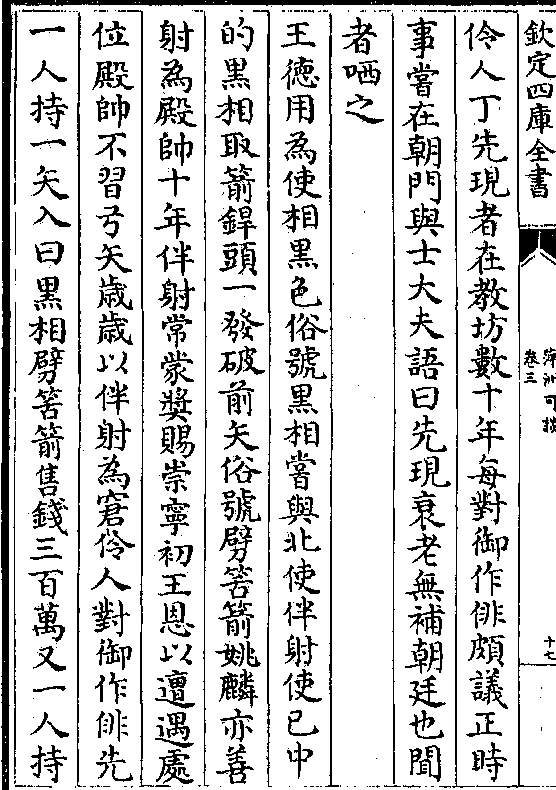 欽定四庫全書
萍洲可談
卷三
十七
伶人丁先現者在教坊數十年每對御作俳頗議正時
事嘗在朝門與士大夫語曰先現衰老無補朝廷也聞
者哂之
王德用為使相黒色俗號黒相嘗與北使伴射使已中
的黒相取箭銲頭一發破前矢俗號劈筈箭姚麟亦善
射為殿帥十年伴射常蒙奬賜崇寧初王恩以遭遇處
位殿帥不習弓矢歳歳以伴射為窘伶人對御作俳先
一人持一矢入曰黒相劈筈箭售錢三百萬又一人持